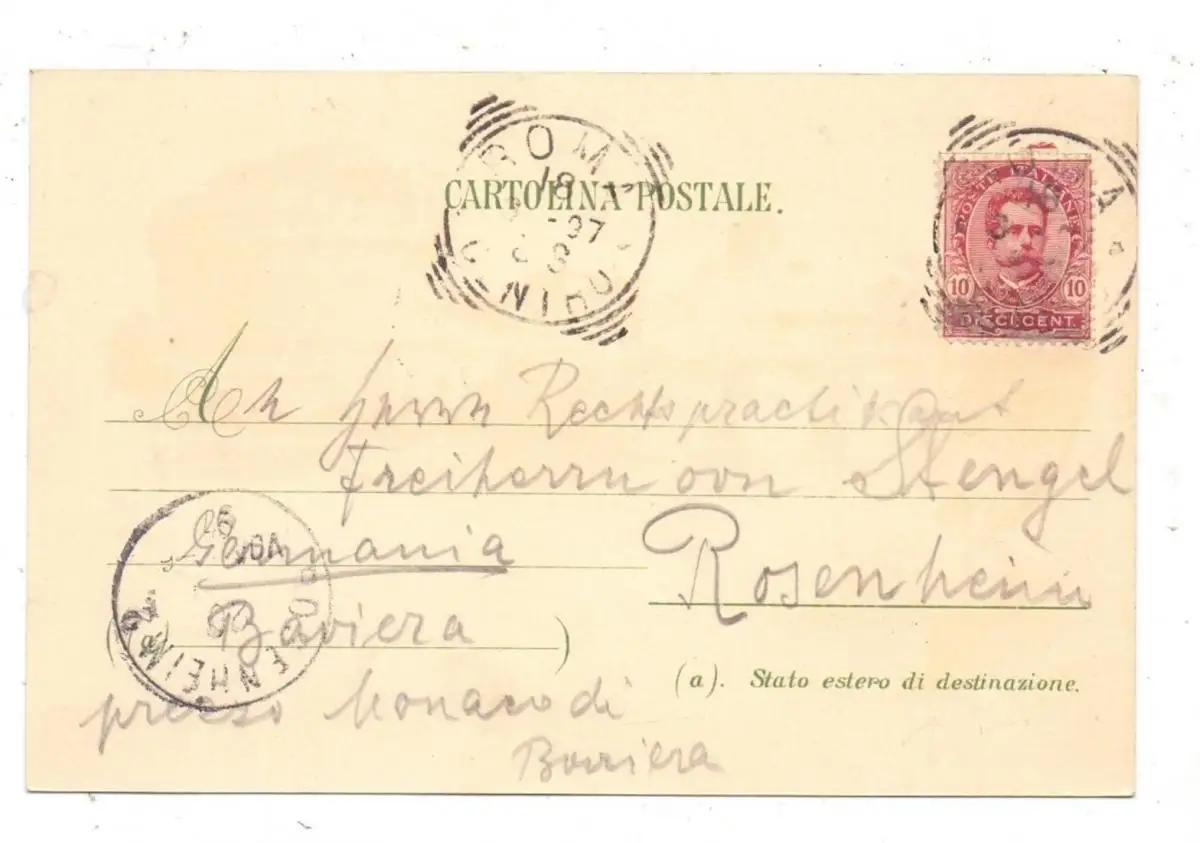 ROMA
18
-97
8 S
CARTOLINA POSTALE.
POSTE ITALIANE
10 10
DIECI CENT.
An Herrn Rechtspractikant
Freiherrn von Stengel
Germania
Rosenheim
(Baviera)
(a). Stato estero di destinazione.
presso Monaco di
Baviera
ROSENHEIM